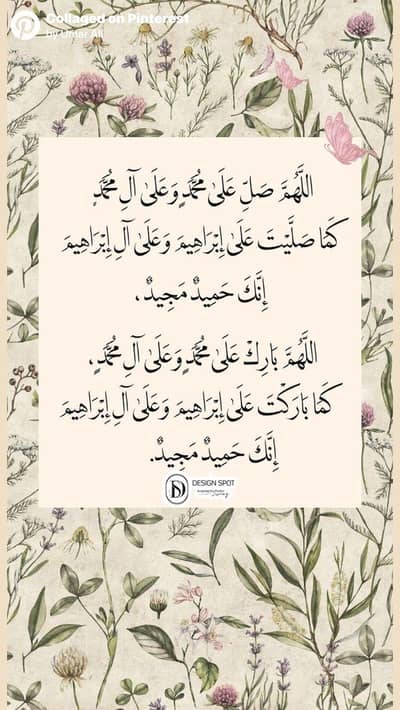 Collaged on Pinterest
by Umar Ali
اللَّهُمَّ صَلِّ عَلَىٰ مُحَمَّدٍ وَعَلَىٰ آلِ مُحَمَّدٍ
كَمَا صَلَّيْتَ عَلَىٰ إِبْرَاهِيمَ وَعَلَىٰ آلِ إِبْرَاهِيمَ
إِنَّكَ حَمِيدٌ مَجِيدٌ،
اللَّهُمَّ بَارِكْ عَلَىٰ مُحَمَّدٍ وَعَلَىٰ آلِ مُحَمَّدٍ،
كَمَا بَارَكْتَ عَلَىٰ إِبْرَاهِيمَ وَعَلَىٰ آلِ إِبْرَاهِيمَ
إِنَّكَ حَمِيدٌ مَجِيدٌ.
DESIGN SPOT